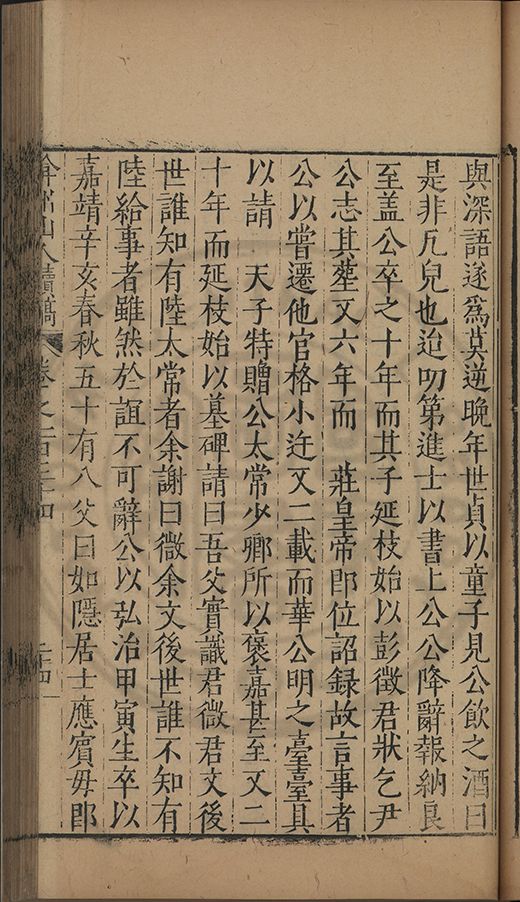 與深語遂爲莫逆晚年世貞以童子見公飲之酒曰
是非凡兒也迨叨第進士以書上公公降辭報納良
至盖公卒之十年而其子延枝始以彭徵君狀乞尹
公志其塟又六年而　莊皇帝卽位詔録故言事者
公以嘗遷他官格小迕又二載而華公明之臺臺具
以請　天子特贈公太常少卿所以褒嘉甚至又二
十年而延枝始以墓碑請曰吾父實識君微君文後
世誰知有陸太常者余謝曰微余文後世誰不知有
陸給事者雖然於誼不可辭公以弘治甲寅生卒以
嘉靖辛亥春秋五十有八父曰如隱居士應賓毋卽
弇州山人續稿　卷之一百三十四　二十四